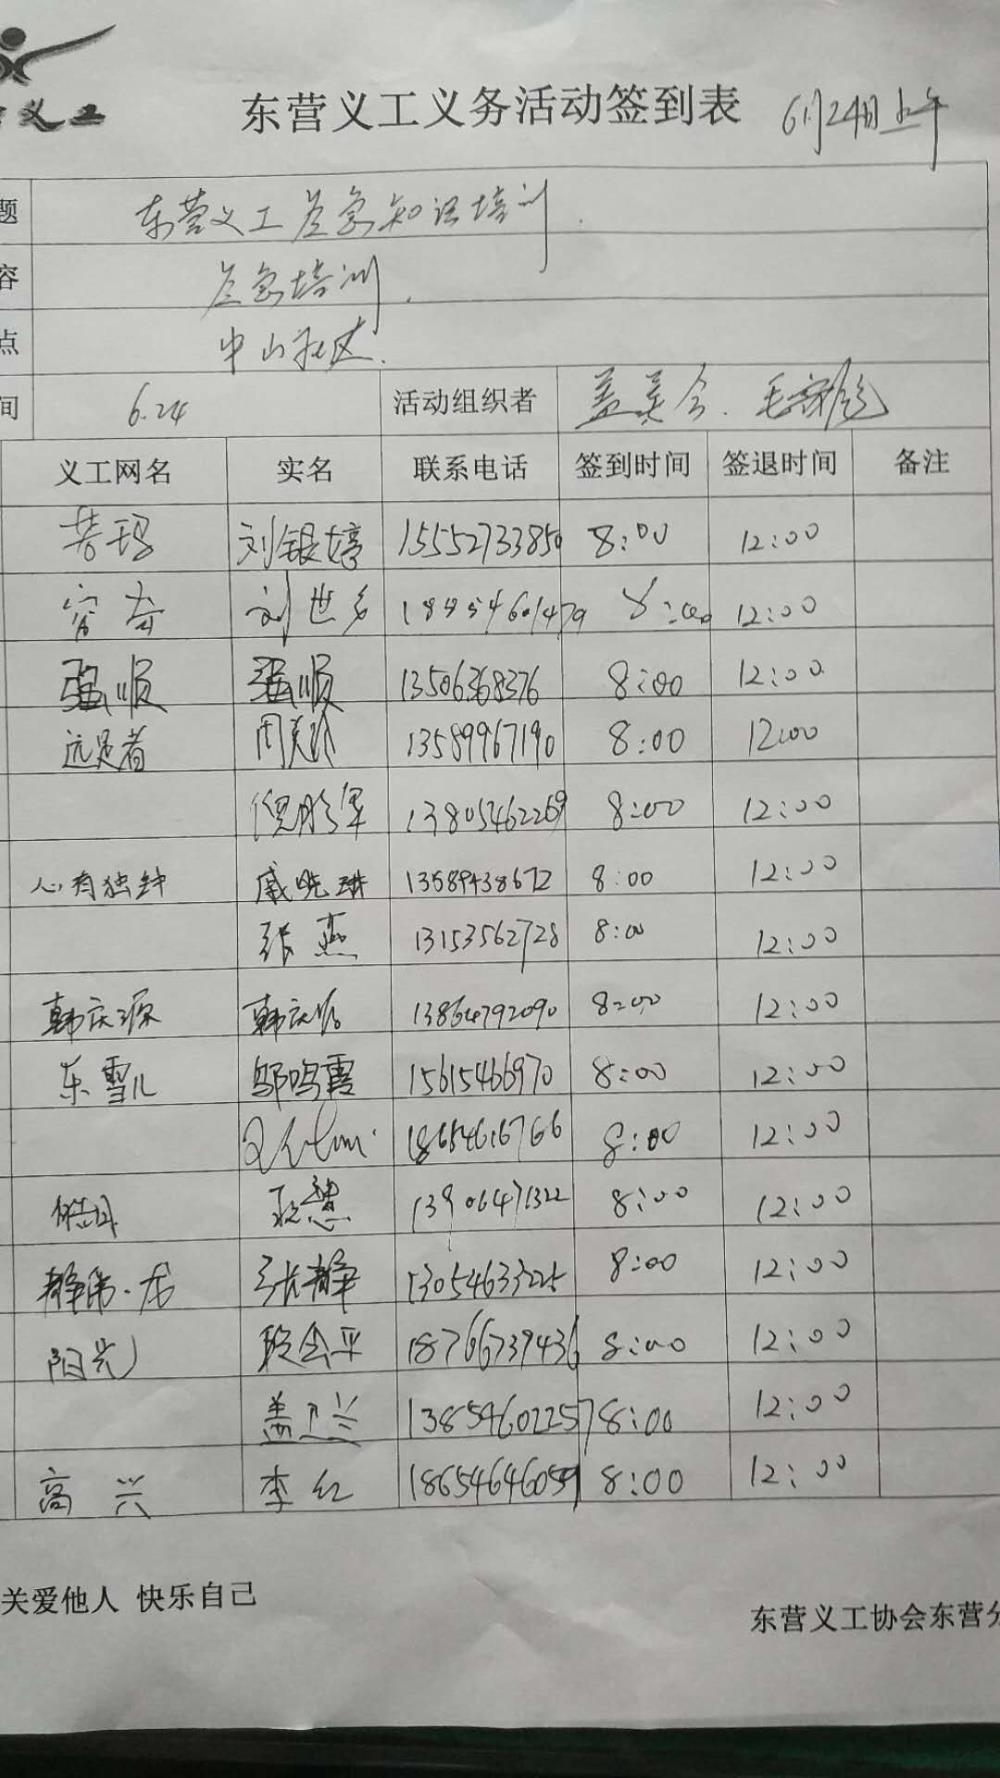 义工
东营义工义务活动签到表 6月24日上午
题 东营义工应急知识培训
容 应急培训
点 中山社区
间 6.24 活动组织者 盖美令
义工网名 实名 联系电话 签到时间 签退时间 备注
刘银婷 15552733850 8:00 12:00
刘世多 8:00 12:00
强顺 强顺 13506368376 8:00 12:00
远足者 周美玲 13589967190 8:00 12:00
倪彤军 13805462269 8:00 12:00
心有独钟 戚晓琳 13589438672 8:00 12:00
张燕 13153562728 8:00 12:00
韩庆源 韩庆源 13864792090 8:00 12:00
东雪儿 邬鸣霞 15615466970 8:00 12:00
18654616766 8:00 12:00
耿慧 13906471322 8:00 12:00
张静 13054633225 8:00 12:00
阳光 段会平 18766739436 8:00 12:00
盖卫兰 13854602257 8:00 12:00
高兴 李红 18654646059 8:00 12:00
关爱他人 快乐自己
东营义工协会东营分